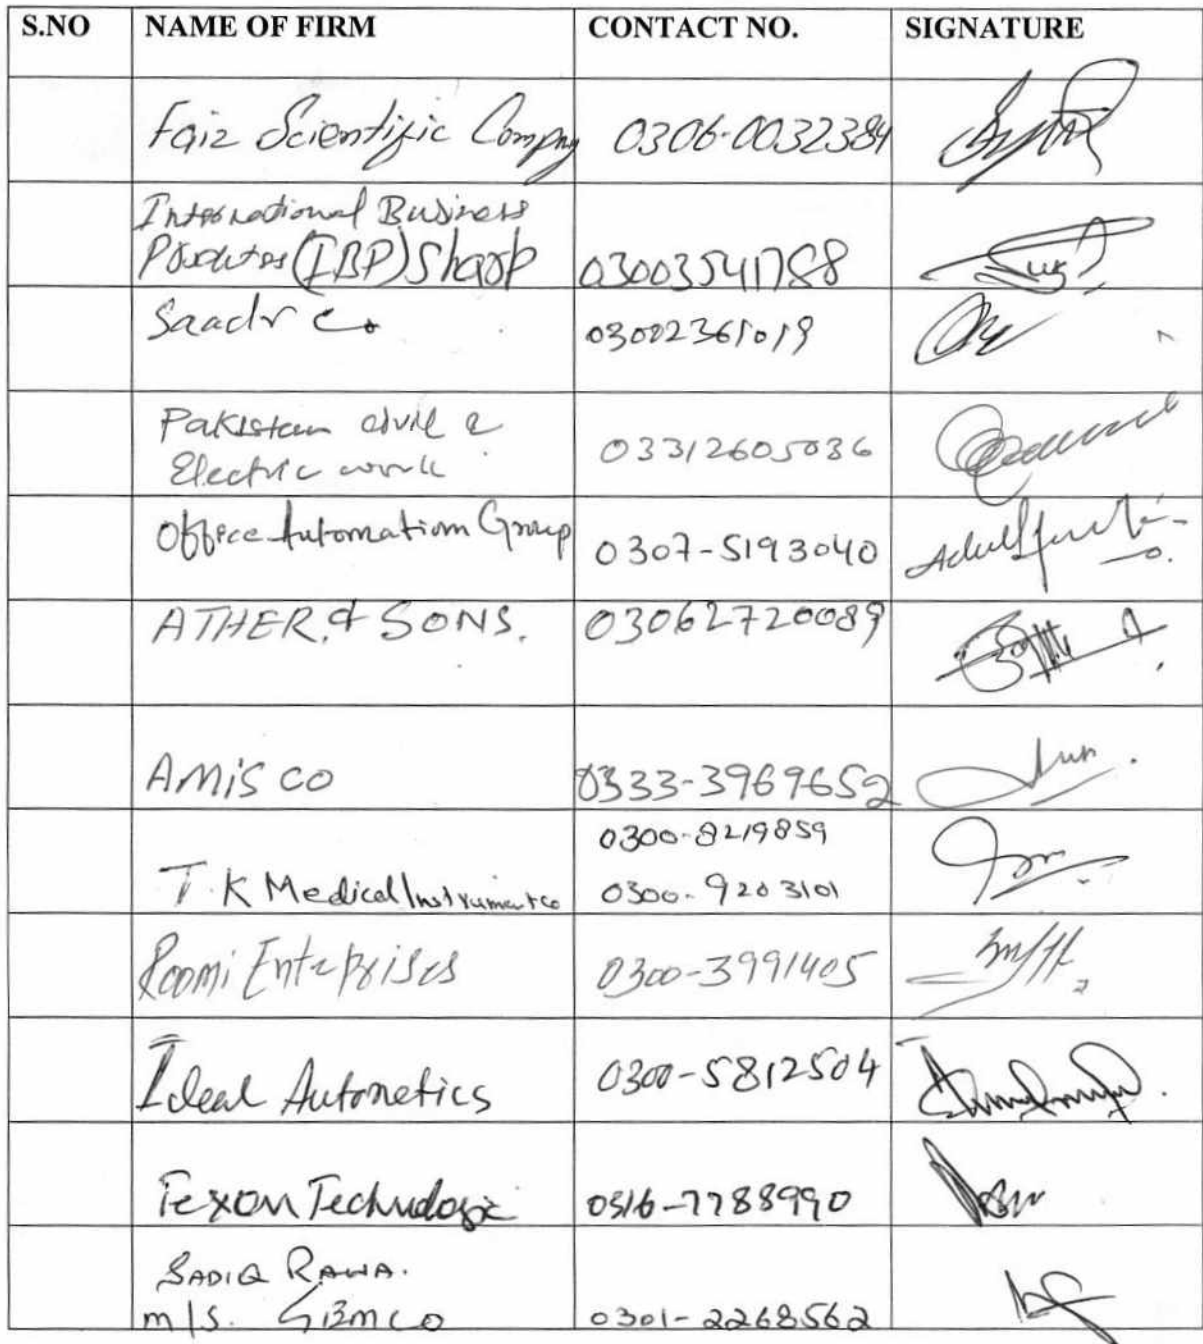 S.NO NAME OF FIRM CONTACT NO. SIGNATURE
Faiz Scientific Compny 0306-0032384
International Business
Products (IBP) Sharp 03003541788
Saadr Co 03002361019
Pakistan civil &
Electric work 03312605036
Office Automation Group 0307-5193040
ATHER & SONS. 03062720089
AMiS CO 0333-3969652
0300-8219859
T.K Medical Instrument co 0300-9203101
Roomi Enterprises 0300-3991405
Ideal Autometics 0300-5812504
Texon Technologie 0316-7788990
SADIQ RAWA.
m/s. GIBMCO 0301-2268562